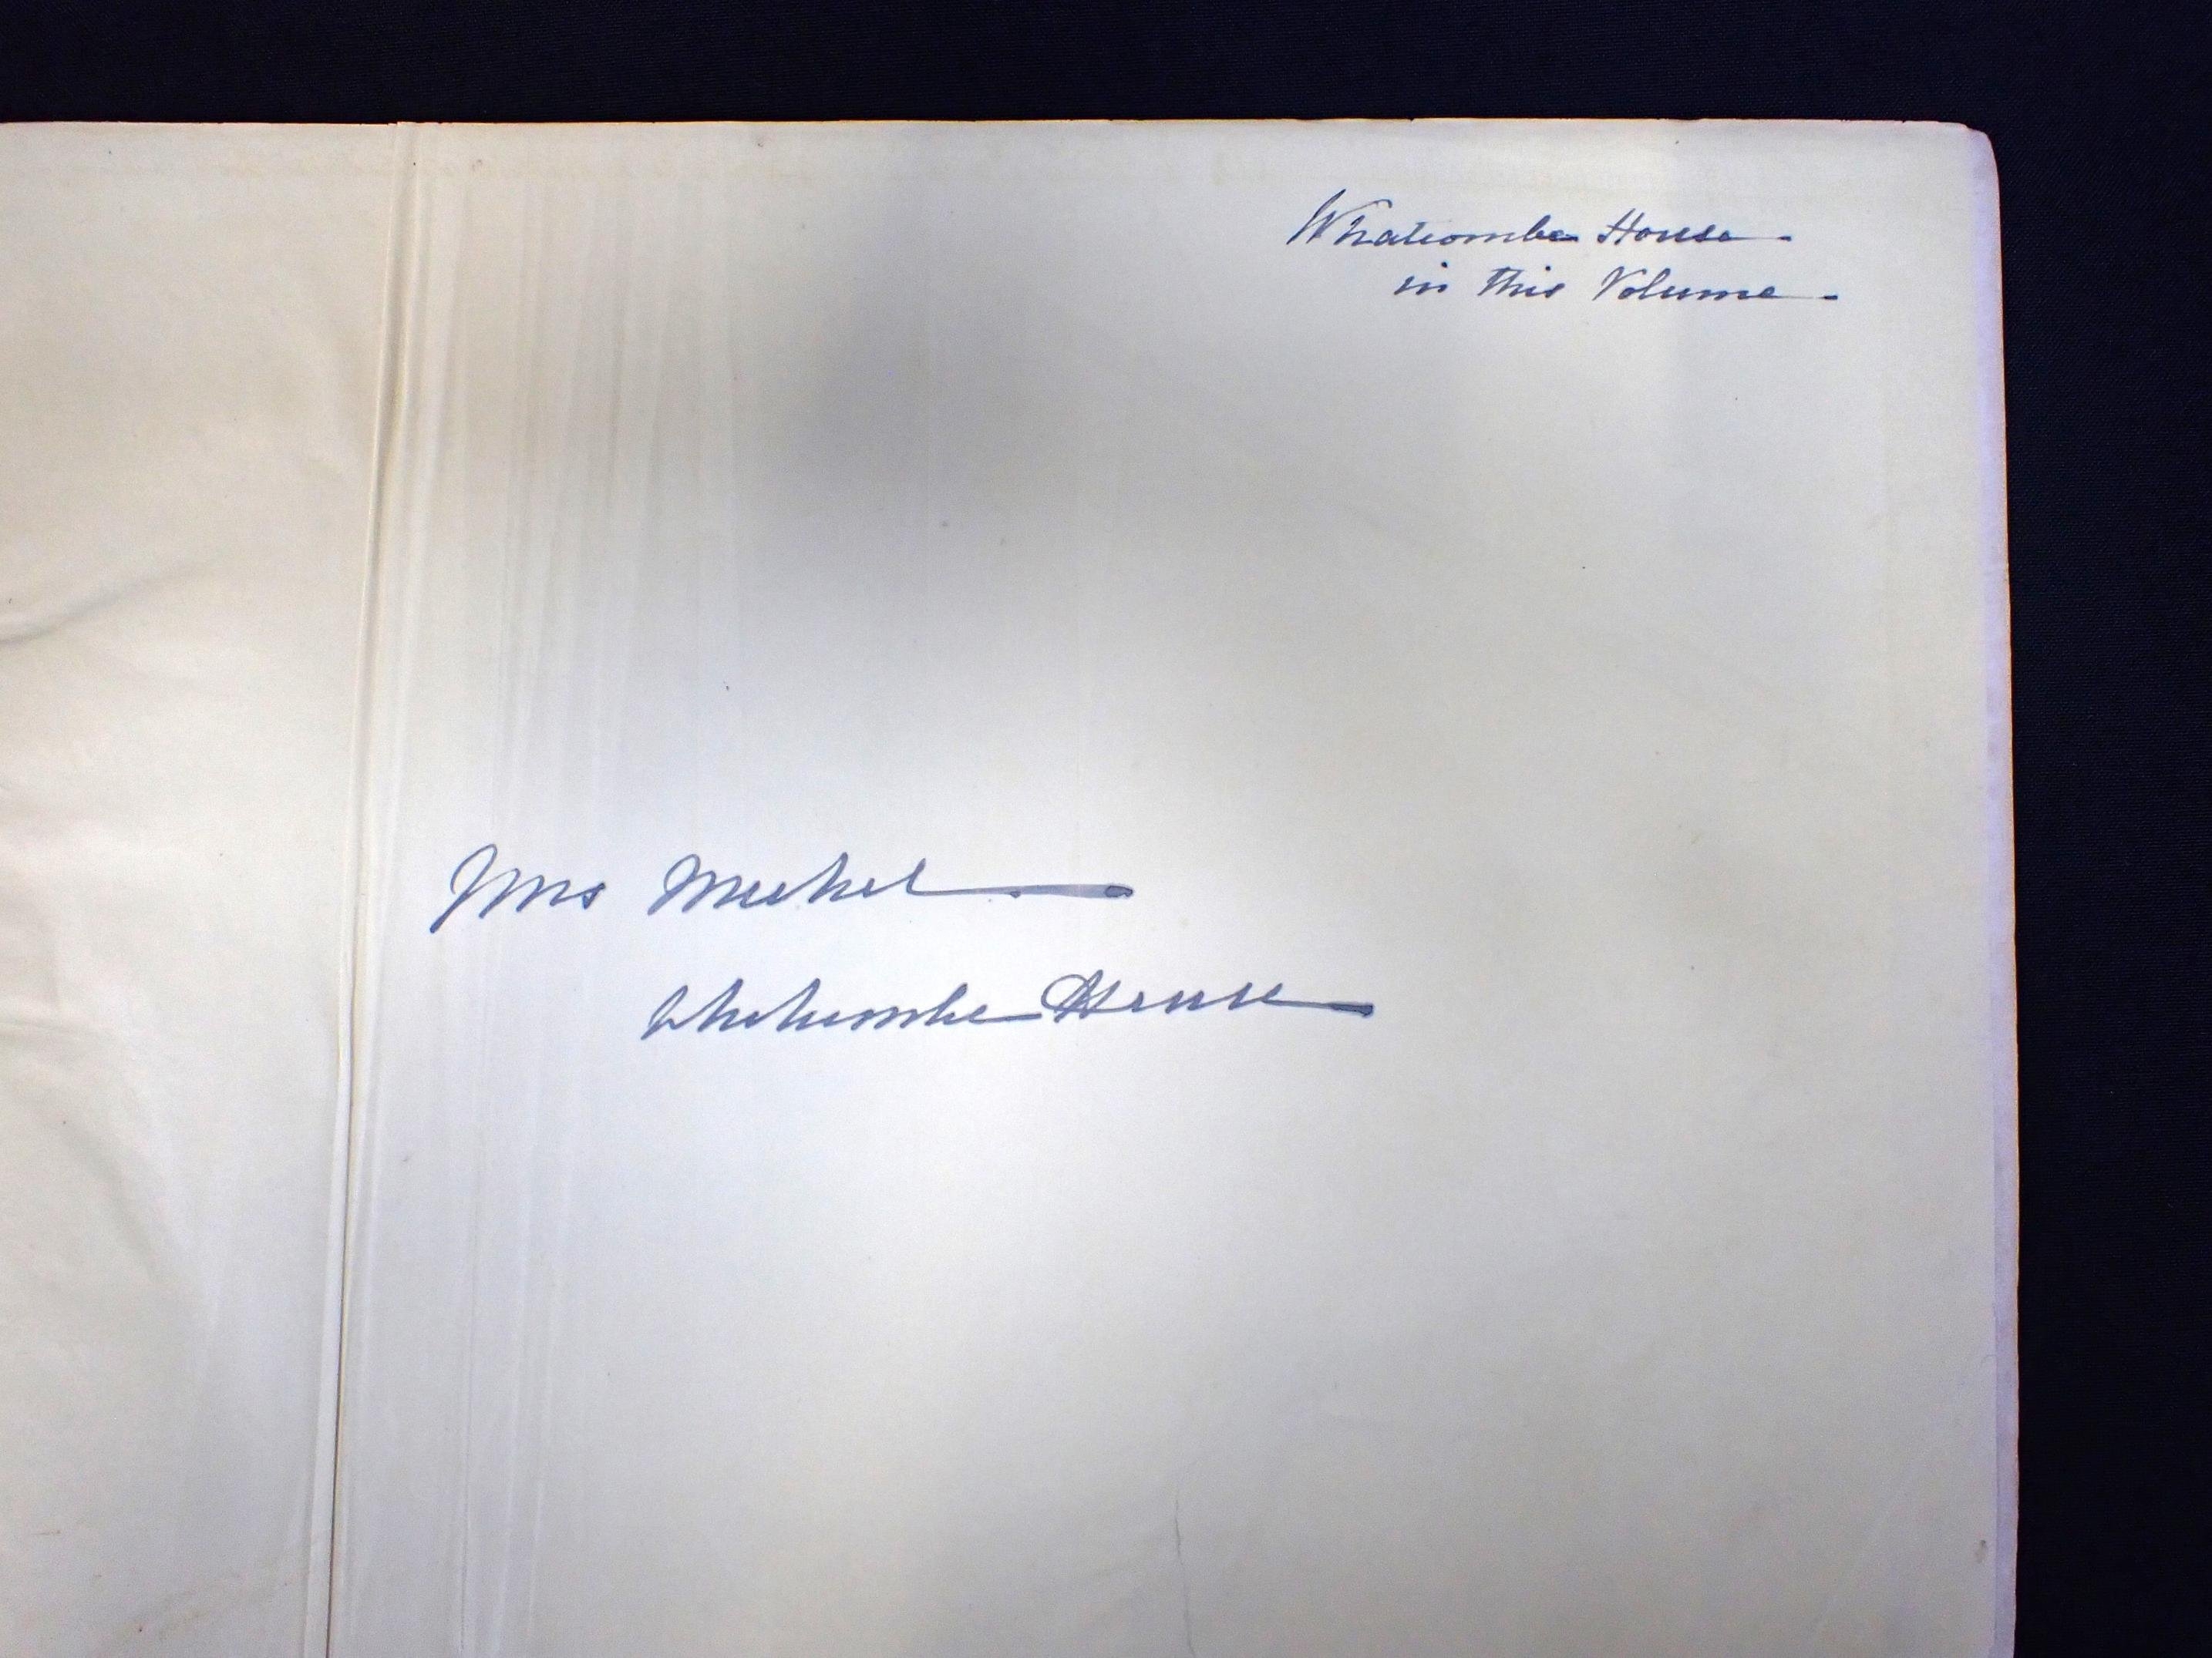 Whatcombe House.
in this Volume.
Mrs Michel
Whatcombe House